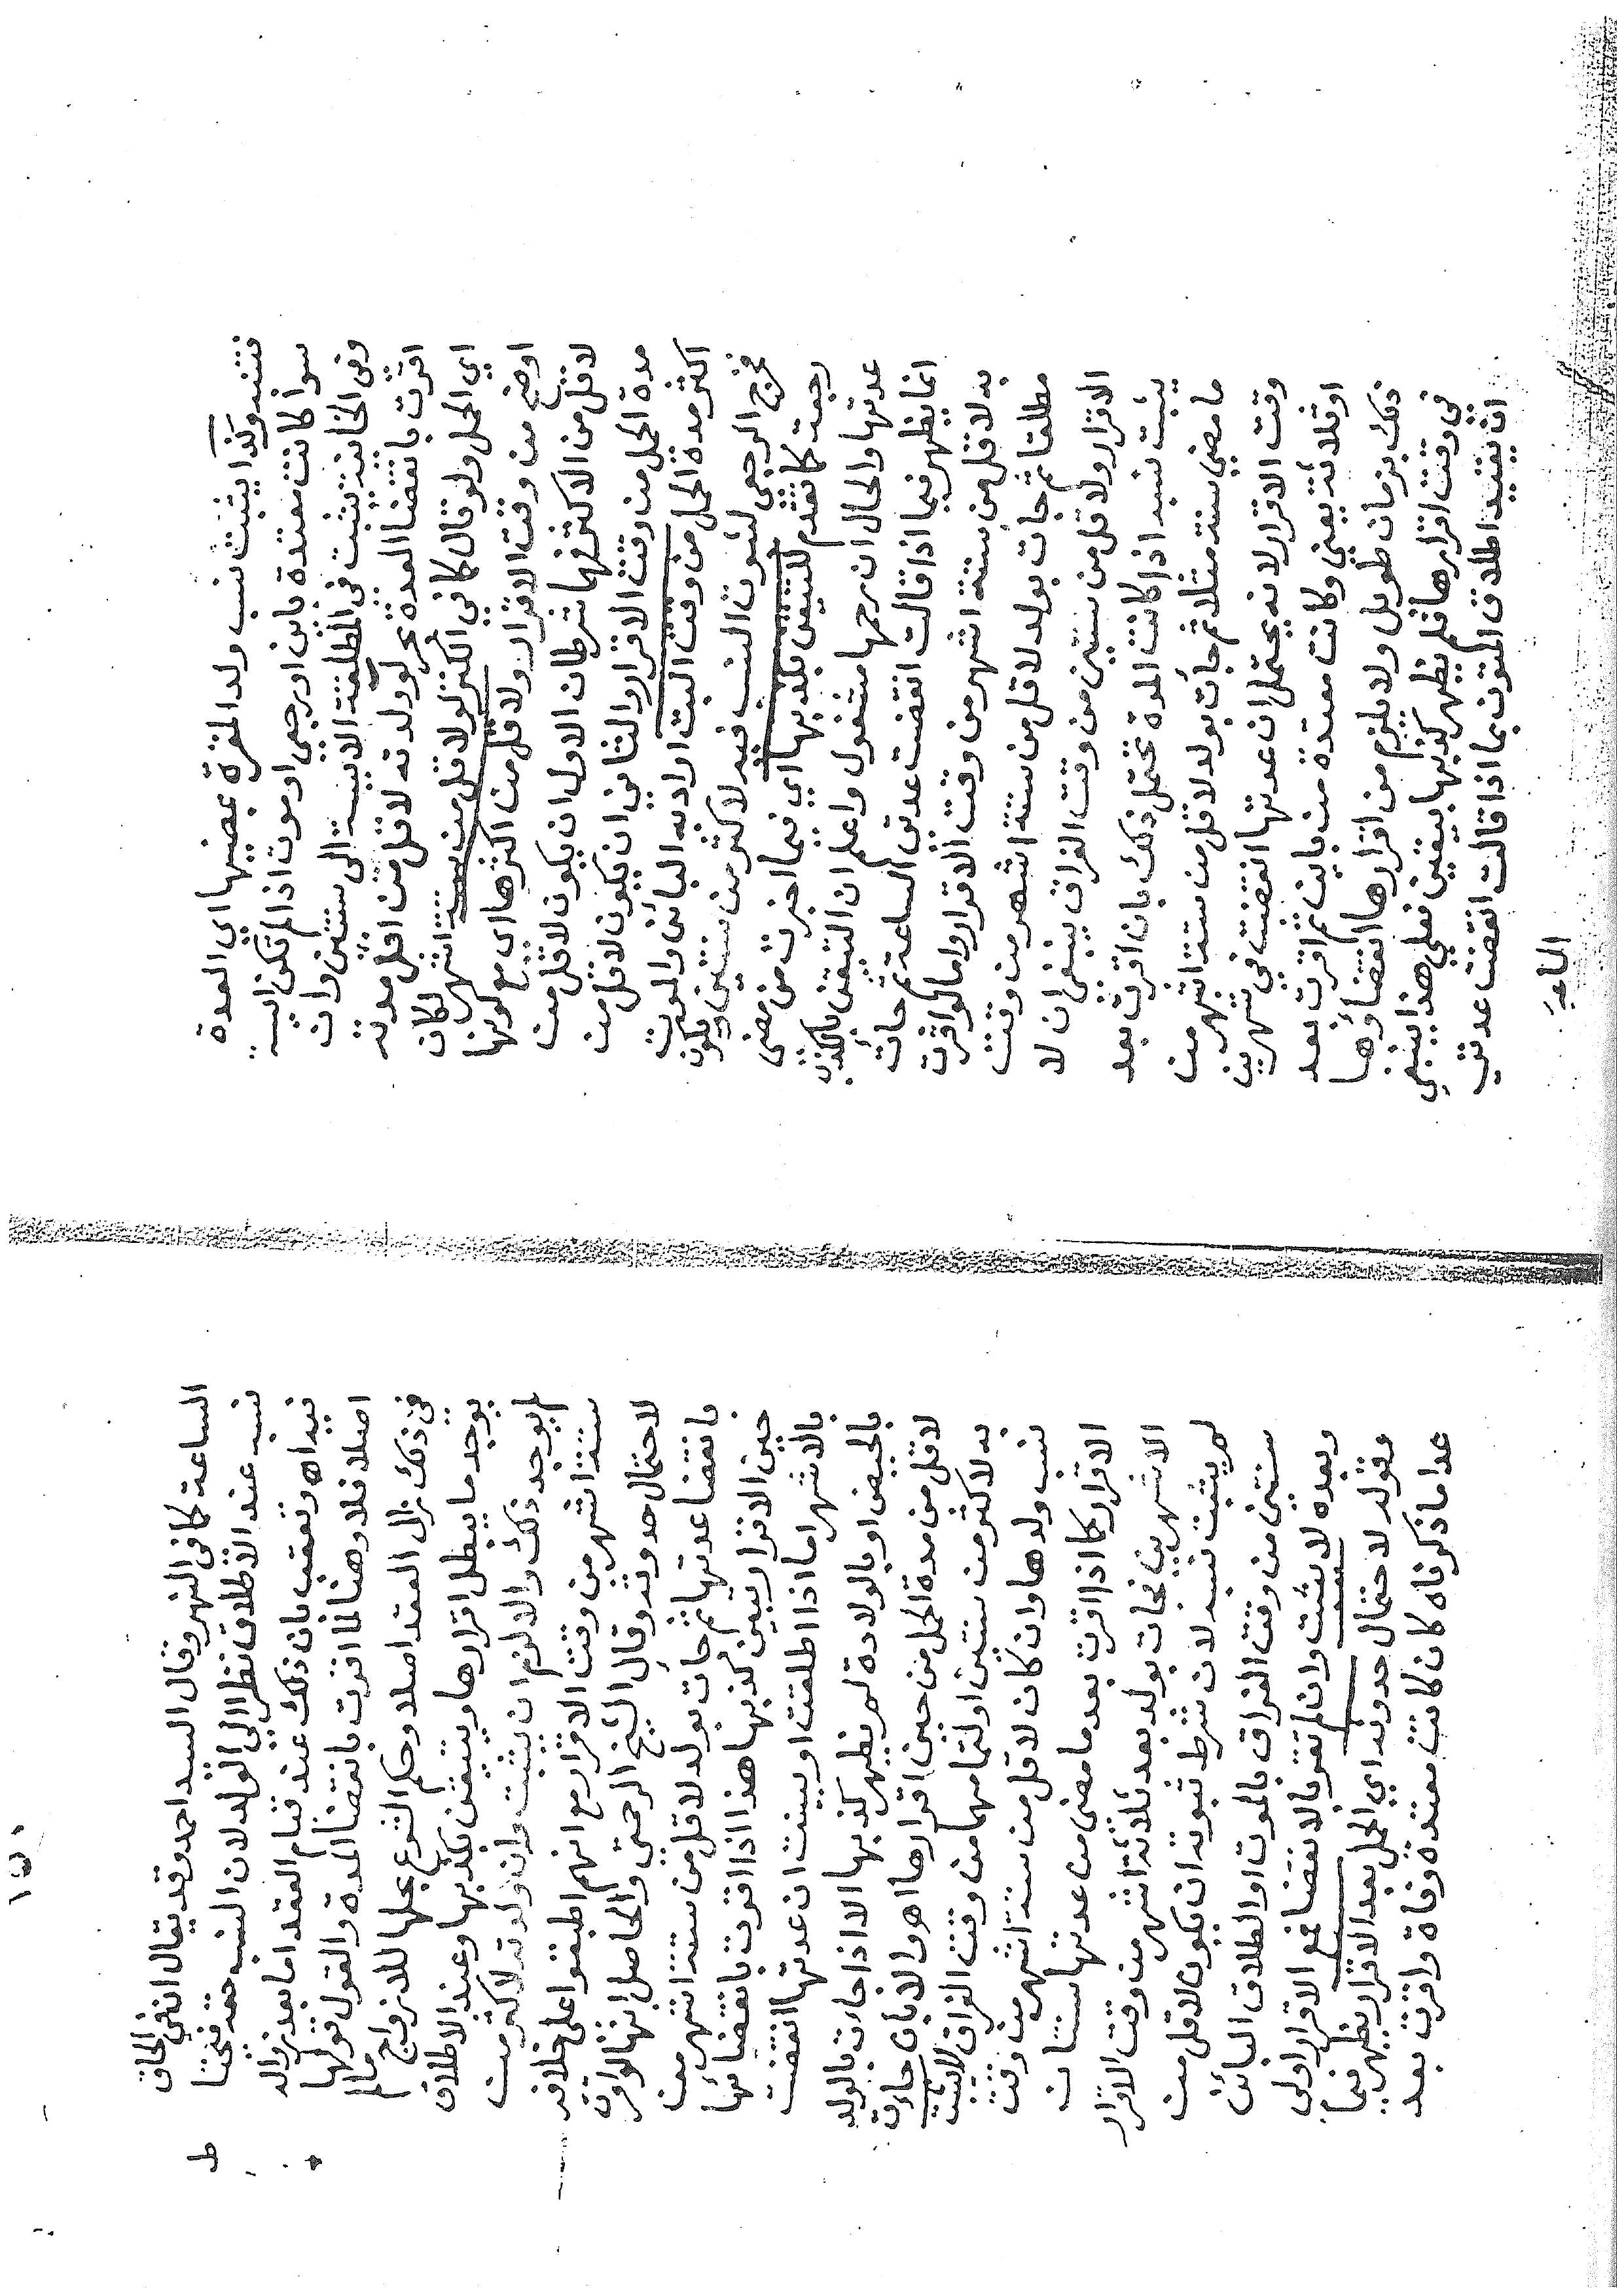 فتنه وكذا يثبت نسب ولد المقرة بمضيها اي العدة
سوا كانت معتدة باين او رجعي او موت اذا لم تكن ايسة
وفى الخانية يثبت في المطلقة الايسة الى سنتين وان
اقرت بانقضا العدة بحر لو ولدته لاقل من اقل مدته
اي الحمل ولو قال كما في الكنز لولاقل من ستة اشهر لكان
اوضح من وقت الاقرار ولاقل من اكثرها اي مع كونها
لاقل من الاكثر فهما شرطان الاول ان يكون لاقل من
مدة الحمل من وقت الاقرار والثاني ان يكون لاقل من
اكثر مدة الحمل من وقت البت اراد به البائن والموت
فخرج الرجعي لثبوت النسب فيه لاكثر من سنتين ويكون
رجعة كما تقدم للتيقن بكذبها اي فيما اخبرت من مضي
عدتها والحال ان رحمها مشغول واعلم ان التيقن بالكذب
انما يظهر فيما اذا قالت انقضت عدتي الساعة ثم جأت
به لاقل من ستة اشهر من وقت الاقرار واما لو اقرت
مطلقا ثم جأت بولد لاقل من ستة اشهر من وقت
الاقرار ولاقل من سنتين من وقت الفراق ينبغي ان لا
يثبت نسبه اذا كانت المدة تحتمل ذلك بان اقرت بعد
ما مضي سنة مثلا ثم جأت بولد لاقل من ستة اشهر من
وقت الاقرار لانه يحتمل ان عدتها انقضت في شهرين
او ثلاثة يعني وكانت معتدة من باين ثم اقرت بعد
ذلك بزمان طويل ولا يلزم من اقرارها انقضاؤها
في وقت اقرارها فلم يظهر كذبها بيقين فعلي هذا ينبغي
ان يقيد اطلاق المتون بما اذا قالت انقضت عدتي
الساعة
١٥٠
الساعة كما في النهر وقال السيد احمد وقد يقال انفي الحاق
نسبه عند الاطلاق نظرا الي الولد لان النسب حقه فتحتا
فيه اه وتعقب بان ذلك عند قيام العقد اما بعد زواله
اصلا فلا وهنا لما اقرت بانقضا المدة والقول قولها
في ذلك زال العقد اصلا وحكم الشرع بحلها للازواج مالم
يوجد ما يبطل اقرارها ويتيقن بكذبها وعند الاطلاق
لم يوجد ذلك والا لزم ان يثبت وان ولدته لاكثر من
ستة اشهر من وقت الاقرار مع انهم اطبقوا على خلافه
لاحتمال حدوثه وقال الشيخ الرحمتي والحاصل انها لو اقرت
بانقضا عدتها ثم جأت بولد لاقل من ستة اشهر من
حين الاقرار يبقين كذبها هذا اذا اقرت بانقضائها
بالاشهر اما اذا اطلقت او بينت ان عدتها انقضت
بالحيض او بالولادة لم يظهر كذبها الا اذا جاءت بالولد
لاقل من مدة الحمل من حين اقرارها اهر والا بان جاءت
به لاكثر من سنتين او لتمامهما من وقت الفراق لا يثبت
نسب ولدها وان كان لاقل من ستة اشهر من وقت
الاقرار كما اذا اقرت بعد ما مضى من عدتها سنتان
الا شهرين فجأت بولد بعد ثلاثة اشهر من وقت الاقرار
لم يثبت نسبه لان شرط ثبوته ان يكون لاقل من
سنتين من وقت الفراق بالموت او الطلاق البائن
وبعده لا يثبت وان لم تقر بالانقضا فمع الاقرار اولي
وقوله لاحتمال حدوثه اي الحمل بعد الاقرار يظهر فيما
عدا ما ذكرناه كان كانت معتدة وفاة واقرت بعد
ط